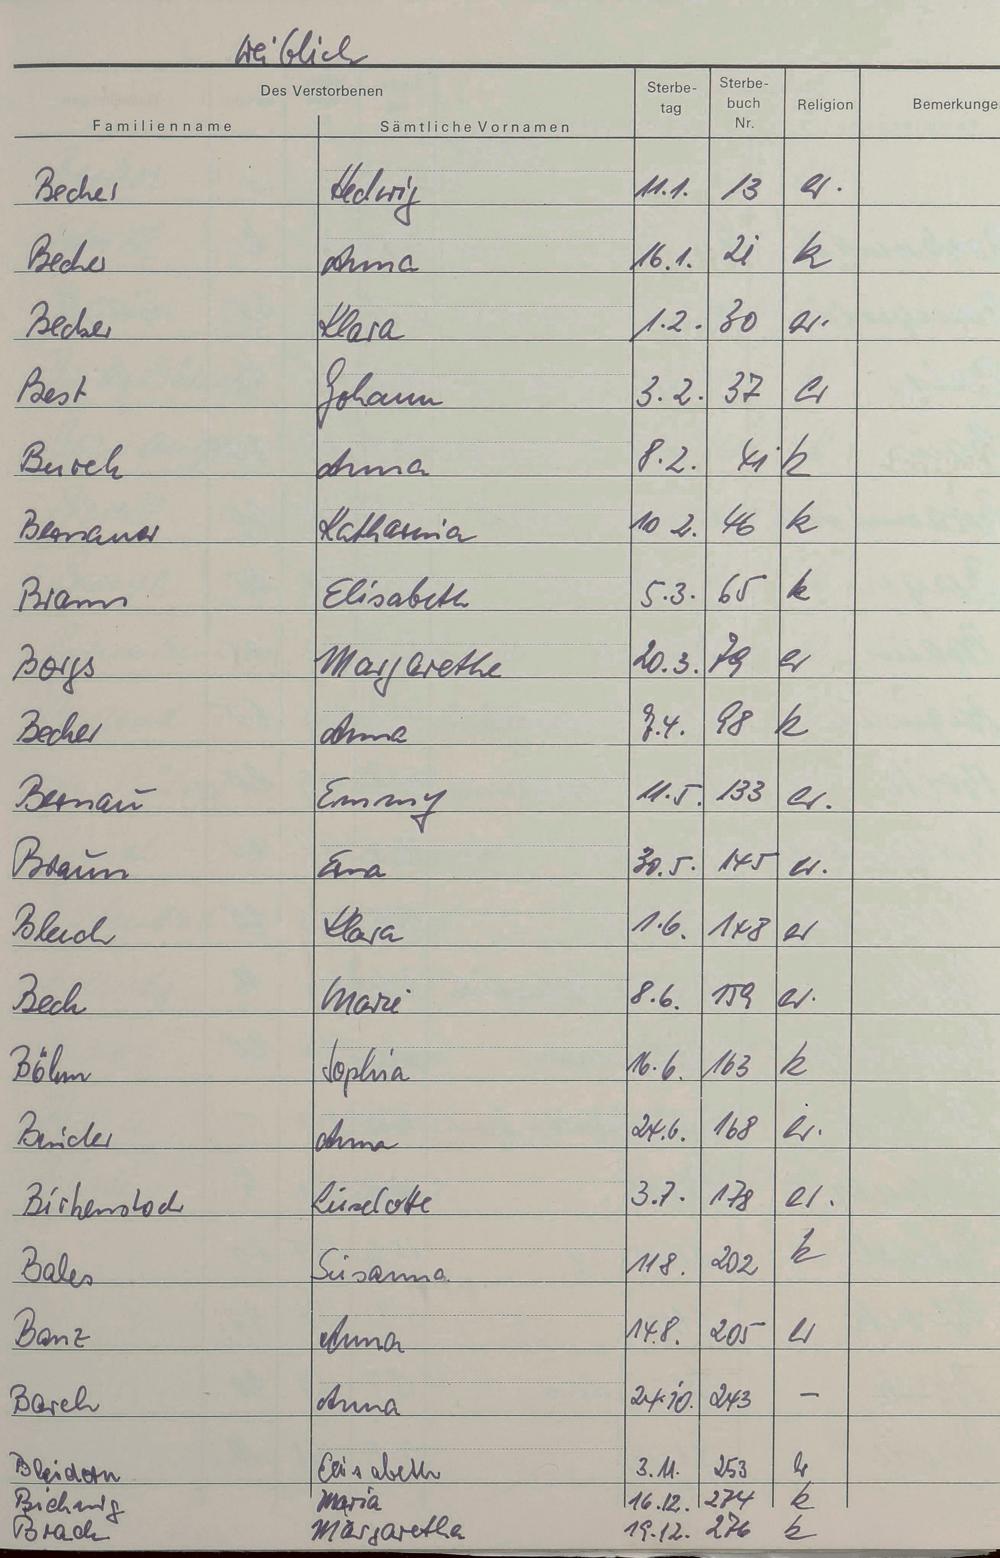 weiblich
Des Verstorbenen Sterbe-tag Sterbe-buch Nr. Religion Bemerkungen
Familienname Sämtliche Vornamen
Becher Hedwig 11.1. 13 ev.
Becher Anna 16.1. 21 k
Becker Klara 1.2. 30 ev.
Best Johann 3.2. 37 ev
Anna 8.2. 41 k
Bernauer Katharina 10 2. 46 k
Braun Elisabeth 5.3. 65 k
Borgs Margarethe 20.3. 79 ev
Becher Anna 7.4. 98 k
Bernau Emmy 11.5. 133 ev.
Braun Erna 30.5. 145 ev.
Klara 1.6. 148 ev
Beck Marie 8.6. 159 ev.
Böhm Sophia 16.6. 163 k
Anna 24.6. 168 ev.
Birkenstock Liselotte 3.7. 178 ev.
Bales Susanna 11 8. 202 k
Banz Anna 14.8. 205 ev
Anna 24.10. 243 –
Elisabeth 3.11. 253
Maria 16.12. 274 k
Brack Margaretha 19.12. 276 k